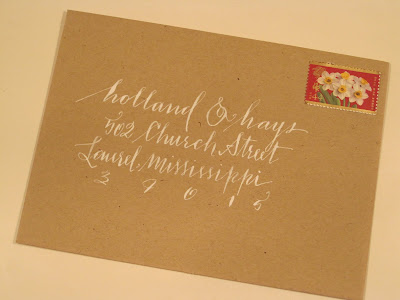 holland & hays
502 Church Street
Laurel, Mississippi
39015